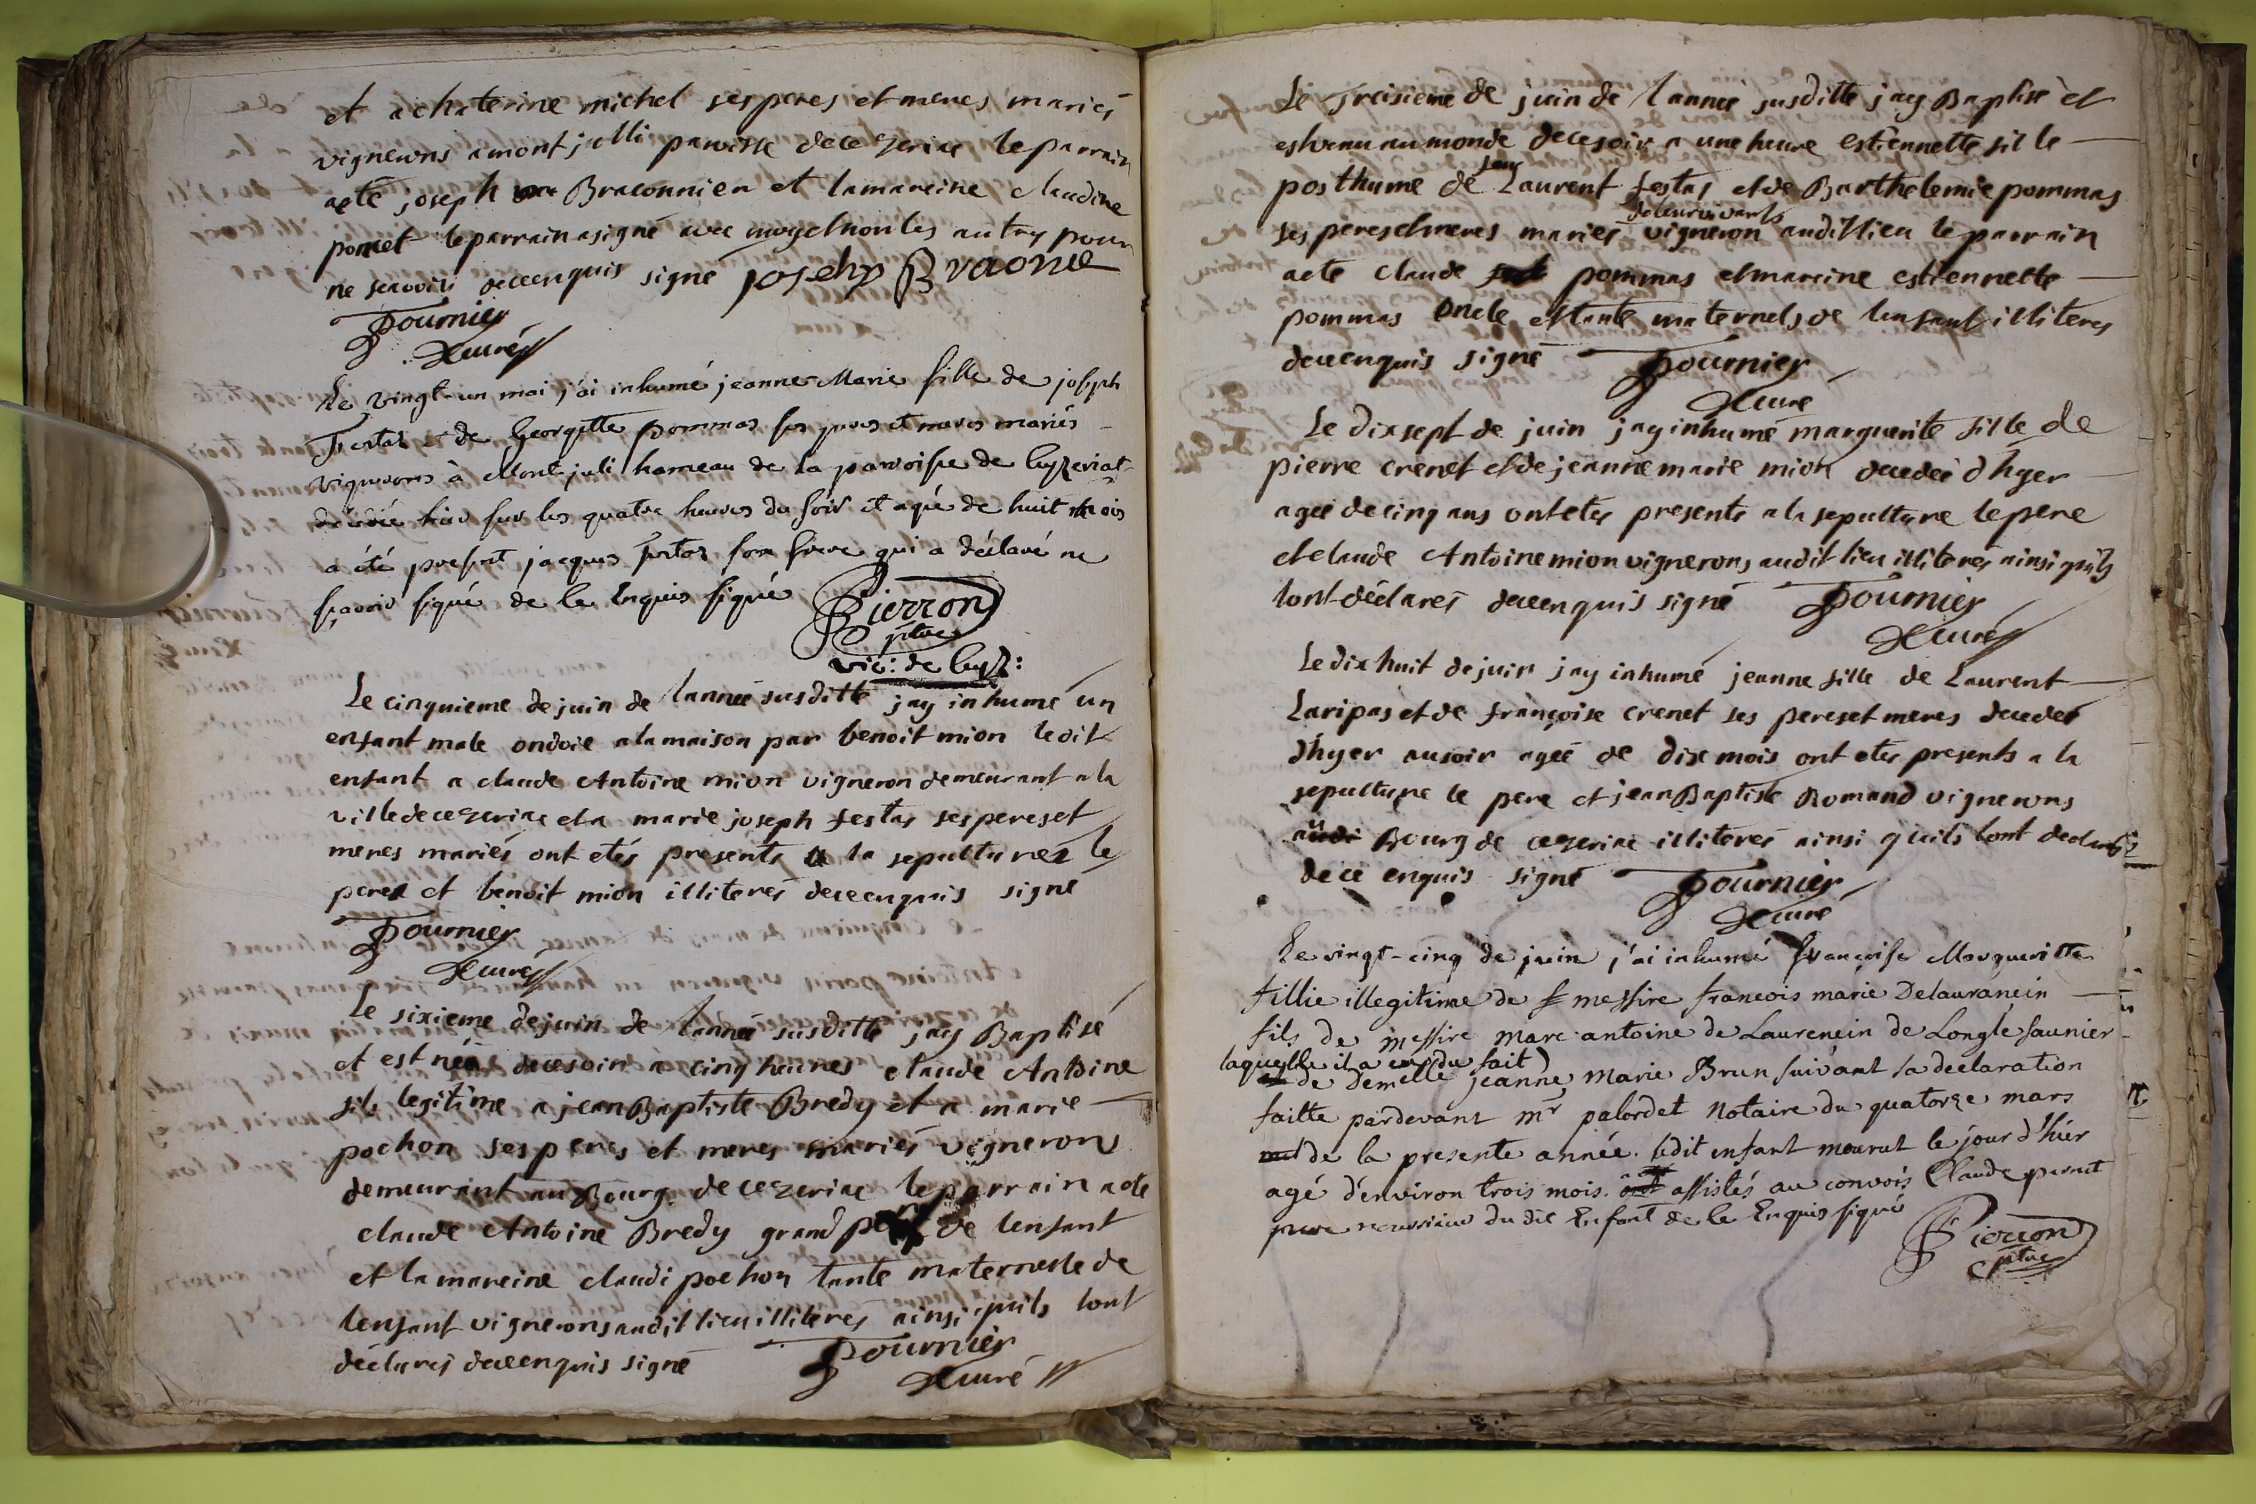 et a chaterine michel ses peres et meres mariés
vignerons a montjulli paroisse de cezeriac le parrain
acté joseph Braconnier et la mareine claudine
ponnet le parrain a signé avec moy et non les autres pour
ne scavoir de ce enquis signé joseph Braonie
fournier
curé
Le vingt-un mai j'ai inhumé jeanne Marie fille de joseph
Festas et de Georgette pommas ses peres et meres mariés
vignerons à Montjuli hameau de la paroisse de Ceyzeriat
décédée hier sur les quatre heures du soir et agée de huit mois
a été present jacques festas son frere qui a déclaré ne
sçavoir signé de ce Enquis signé Pierron
ptre
vic: de Ceyz:
Le cinquieme de juin de lannée susditte jay inhumé un
enfant male ondoié a la maison par benoit mion ledit
enfant a claude Antoine mion vigneron demeurant a la
ville de cezeriac et a marie joseph festas ses peres et
meres mariés ont etés presents a la sepulture le
pere et benoit mion illiterés de ce enquis signé
fournier
curé
Le sixieme de juin de lannée susditte jay Baptisé
et est née de ce soir a cinq heures claude Antoine
fils legitime a jean Baptiste Bredy et a marie
pochon ses peres et meres mariés vignerons
demeurant au Bourg de cezeriac le parrain a eté
claude Antoine Bredy grand pere de lenfant
et la mareine claudi pochon tante maternelle de
lenfant vignerons audit lieu illiterés ainsi quils lont
déclarés de ce enquis signé fournier
curé
Le treisieme de juin de lannée susditte jay Baptisé et
est venu au monde de ce soir a une heure estiennette fille
posthume de feu Laurent festas et de Barthelemie pommas
ses peres et meres mariés de leurs vivants vigneron audit lieu le parrain
a eté claude pommas et mareine estiennette
pommas oncle et tante maternels de lenfant illiterés
de ce enquis signé fournier
curé
Le dix sept de juin jay inhumé marguerite fille de
pierre crenet et de jeanne marie mion decedée d'hyer
agée de cinq ans ont etés presents a la sepulture le pere
et claude Antoine mion vignerons audit lieu illiterés ainsi quils
lont déclarés de ce enquis signé fournier
curé
Le dix huit de juin jay inhumé jeanne fille de Laurent
Laripas et de françoise crenet ses peres et meres decedée
d'hyer au soir agée de dix mois ont etés presents a la
sepulture le pere et jean Baptiste Romand vignerons
au Bourg de cezeriac illiterés ainsi quils lont declarés
de ce enquis signé fournier
curé
Le vingt-cinq de juin j'ai inhumé françoise Margueritte
fillie illegitime de messire francois marie Delaurancin
fils de messire marc antoine de Laurencin de Longle saunier
laquelle il a eu du fait
de demelle jeanne marie Brun suivant sa declaration
faitte pardevant mr palordet Notaire du quatorze mars
de la presente année. ledit enfant mourut le jour d'hier
agé d'environ trois mois. a assistés au convois Claude pernet
pere nourricier du dit Enfant de ce Enquis signé
Pierron
ptre